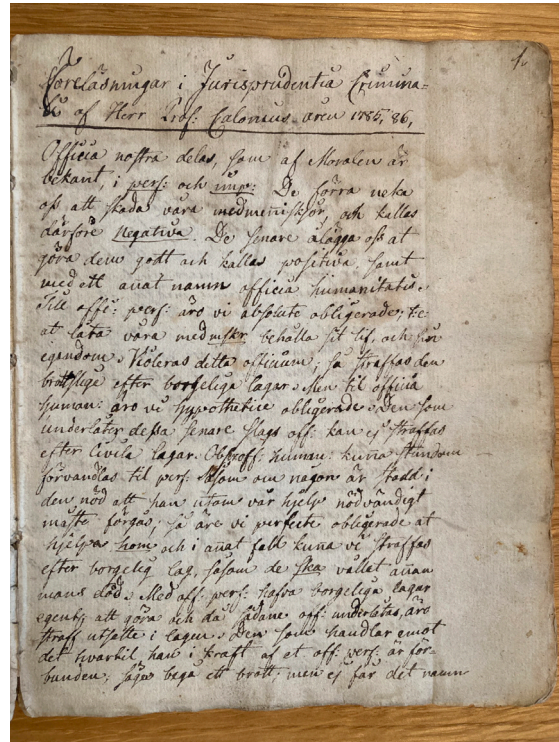 1.
Föreläsningar i Jurisprudentia Crimina=
li af Herr Prof: Calonius åren 1785, 86,
Officia nostra delas, som af Moralen är
bekant, i perf: och imp: De förra neka
oss att skada våra medmenniskor, och kallas
därföre Negativa. De senare ålägga oss at
göra dem godt och kallas positiva. samt
med ett annat namn officia humanitatis.
Till offi: perf: äro vi absolute obligerade; t:e:
at låta våra medniskr behålla sit lif, och sin
egendom. Violeras detta officium; så straffas den
brottslige efter borgeliga lagar. Men til officia
human: äro vi hypothetice obligerade. Den som
underlåter dessa senare slags off: kan ej straffas
efter Civila lagar. Obs: off: human: kunna stundom
förvandlas til perf: såsom om någon är stadd i
den nöd att han utom vår hjelp nödvändigt
måste förgås; så äre vi perfecte obligerade at
hjelpa honom och i annat fall kunna vi straffas
efter borgelig lag, såsom de ska vållat annan
mans död. Med off: perf: hafva borgeliga lagar
egentl: att göra och då sådane off: underlåtas, äro
straff utsatte i lagen. Den som handlar emot
det hvartil han i kraft af et off: perf: är för=
bunden; säges begå ett brott; men ej får det namn